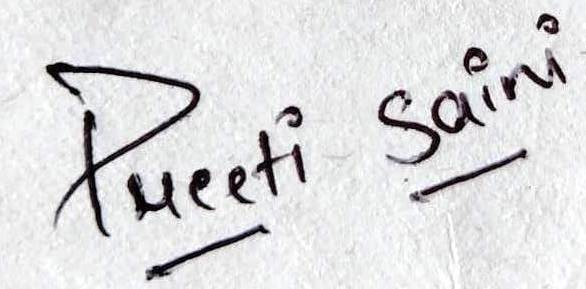 Preeti Saini